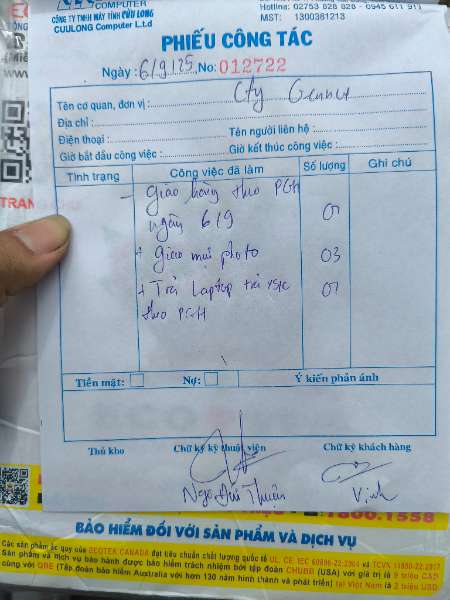 COMPUTER
CÔNG TY TNHH MÁY TÍNH CỬU LONG
CUULONG Computer L.t.d
Hotline: 02753 828 828 - 0945 611 911
MST: 1300381213
PHIẾU CÔNG TÁC
Ngày: 6/9/25 No: 012722
Tên cơ quan, đơn vị: Cty
Địa chỉ:
Điện thoại: Tên người liên hộ:
Giờ bắt đầu công việc: Giờ kết thúc công việc:
Tình trạng Công việc đã làm Số lượng Ghi chú
- Giao hàng theo PGH
ngày 6/9 01
+ Giao mực photo 03
+ Trả Laptop trả
theo PGH 01
Tiền mặt: Nợ: Ý kiến phản ánh
Thủ kho Chữ ký kỹ thuật viên Chữ ký khách hàng
Ngo Thuân Vịnh
1800.1558
BẢO HIỂM ĐỐI VỚI SẢN PHẨM VÀ DỊCH VỤ
Các sản phẩm ắc quy của ECOTEK CANADA đạt tiêu chuẩn chất lượng quốc tế UL, CE, IEC
Sản phẩm và dịch vụ bảo hành được bảo hiểm trách nhiệm bởi tập đoàn CHUBB (USA) với giá trị là
cùng với QBE (Tập đoàn bảo hiểm Australia với hơn 130 năm hình thành và phát triển) tại Việt Nam là 2 triệu USD